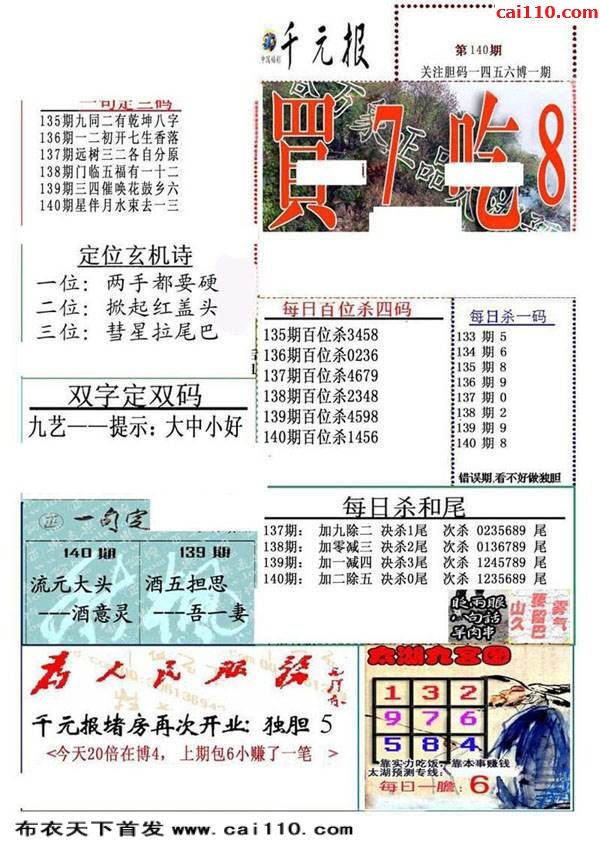 cai110.com
中国福彩
千元报
第140期
关注胆码一四五六博一期
一句定三码
135期九同二有乾坤八字
136期一二初开七生香落
137期远树三二各自分原
138期门临五福有一十二
139期三四催唤花鼓乡六
140期星伴月水束去一三
買7吃8
定位玄机诗
一位: 两手都要硬
二位: 掀起红盖头
三位: 彗星拉尾巴
双字定双码
九艺——提示: 大中小好
每日百位杀四码
135期百位杀3458
136期百位杀0236
137期百位杀4679
138期百位杀2348
139期百位杀4598
140期百位杀1456
每日杀一码
133 期 5
134 期 6
135 期 8
136 期 9
137 期 0
138 期 2
139 期 9
140 期 8
错误期,看不好做独胆
正 一句定
140 期
流元大头
---酒意灵
139 期
酒五担思
---吾一妻
每日杀和尾
137期: 加九除二 决杀1尾 次杀 0235689 尾
138期: 加零减三 决杀2尾 次杀 0136789 尾
139期: 加一减四 决杀3尾 次杀 1245789 尾
140期: 加二除五 决杀0尾 次杀 1235689 尾
眨两眼
八句話
羊肉串
雾气
要留巴
山久
为人民服务
千元报堵房再次开业: 独胆 5
<今天20倍在博4, 上期包6小赚了一笔 >
太湖九宫图
1 3 2
9 7 6
5 8 4
靠实力吃饭, 靠本事赚钱
太湖预测专线:
每日一胆: 6
布衣天下首发 www.cai110.com